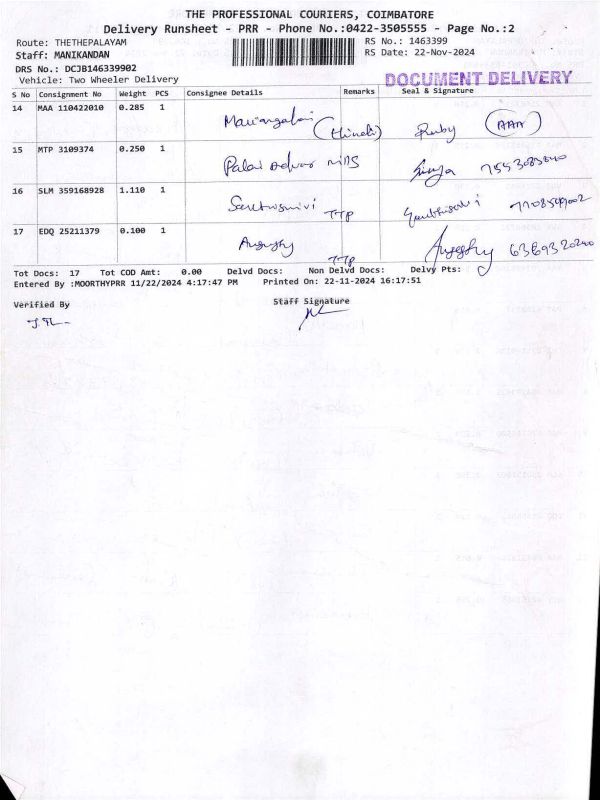 THE PROFESSIONAL COURIERS, COIMBATORE
Delivery Runsheet - PRR - Phone No.:0422-3505555 - Page No.:2
Route: THETHEPALAYAM RS No.: 1463399
Staff: MANIKANDAN RS Date: 22-Nov-2024
DRS No.: DCJB146339902
Vehicle: Two Wheeler Delivery DOCUMENT DELIVERY
S No Consignment No Weight PCS Consignee Details Remarks Seal & Signature
14 MAA 110422010 0.285 1 (Hindi) Ruby (AAA)
15 MTP 3109374 0.250 1
16 SLM 359168928 1.110 1 TTP
17 EDQ 25211379 0.100 1 TTP
Tot Docs: 17 Tot COD Amt: 0.00 Delvd Docs: Non Delvd Docs: Delvy Pts:
Entered By :MOORTHYPRR 11/22/2024 4:17:47 PM Printed On: 22-11-2024 16:17:51
Verified By Staff Signature